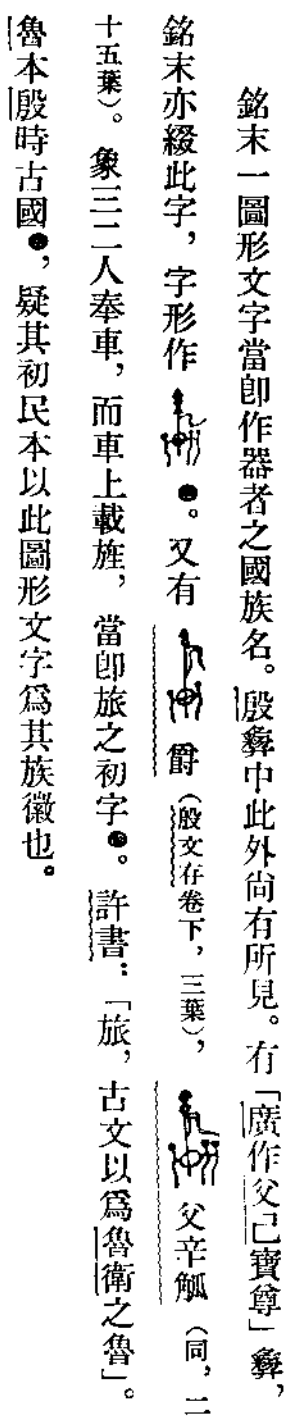 銘末一圖形文字當卽作器者之國族名。殷彝中此外尚有所見。有「廣作父己寶尊」彝，
銘末亦綴此字，字形作。又有爵（殷文存卷下，三葉），父辛觚（同，二
十五葉）。象三二人奉車，而車上載旌，當卽旅之初字。許書：「旅，古文以爲魯衛之魯」。
魯本殷時古國，疑其初民本以此圖形文字爲其族徽也。